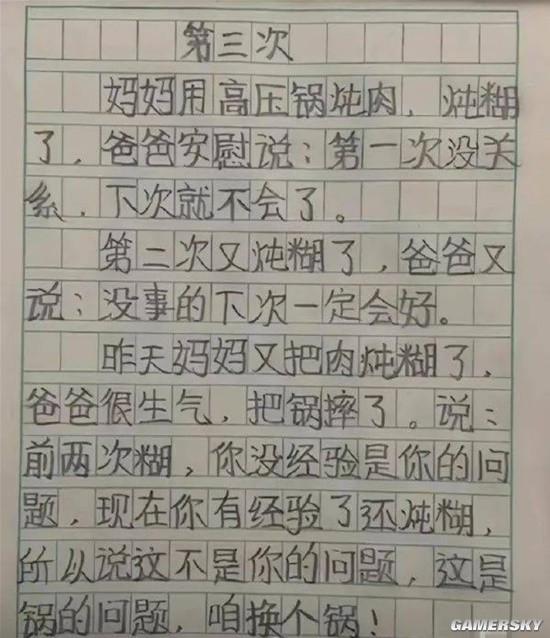 第三次
妈妈用高压锅炖肉，炖糊
了，爸爸安慰说：第一次没关
系，下次就不会了。
第二次又炖糊了，爸爸又
说：没事的下次一定会好。
昨天妈妈又把肉炖糊了，
爸爸很生气，把锅摔了。说：
前两次糊，你没经验是你的问
题，现在你有经验了还炖糊，
所以说这不是你的问题，这是
锅的问题，咱换个锅！
GAMERSKY